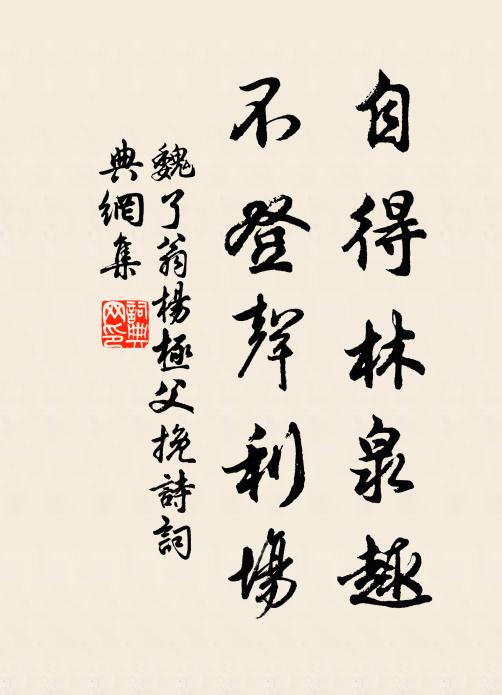 自得林泉趣
不登聲利場
魏了翁楊極父挽詩詞
典網集
詞典网印